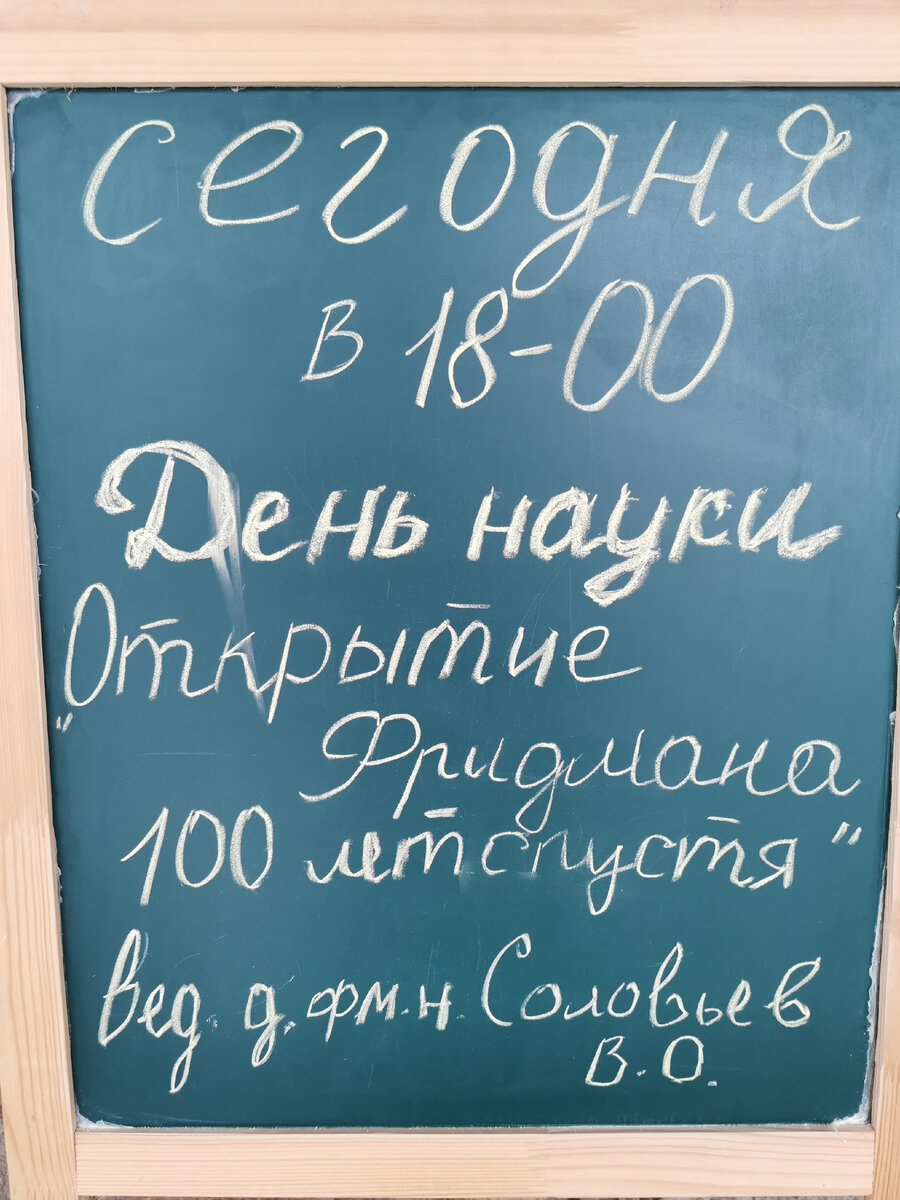 сегодня
в 18-00
День науки
"Открытие
Фридмана
100 лет спустя"
вед. д. фм.н. Соловьев
В.О.